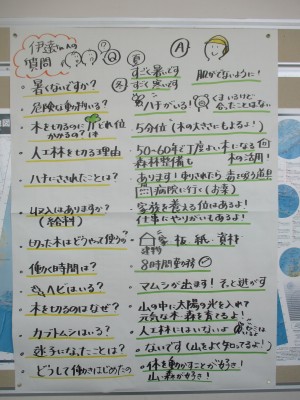 伊達さんへの
質問
Q
A
・暑くないですか？
夏 すごく暑いです
冬 すごく寒いです
肌がでないように！
・危険な動物いる？
ハチがいる！
くまはいるけど
会ったことはない
・木を切るのにどれ位
かかるの？
5分位（木の大きさにもよるよ！）
・人工林を切る理由
50〜60年で丁度よい木になる
森林整備も
木の活用！
・ハチにさされたことは？
あります！さされたら 毒を吸う道具
病院に行く（お薬）
・収入はありますか？
（給料）
家族を養える位はあるよ！
仕事にやりがいもあるよ！
・切った木はどうやって使うの？
建物
家 板 紙 資材
・働く時間は？
8時間勤務
・ヘビはいる？
マムシが出ます！そっと逃がす
・木を切るのはなぜ？
山の中に太陽の光を入れて
元気な木・森を育てるよ！
・カブトムシはいる？
人工林にはいないよ
・迷子になったことは？
ないです（山をよく知ってるよ！）
・どうして働きはじめたの
・体を動かすことが好き！
山・森が好き！